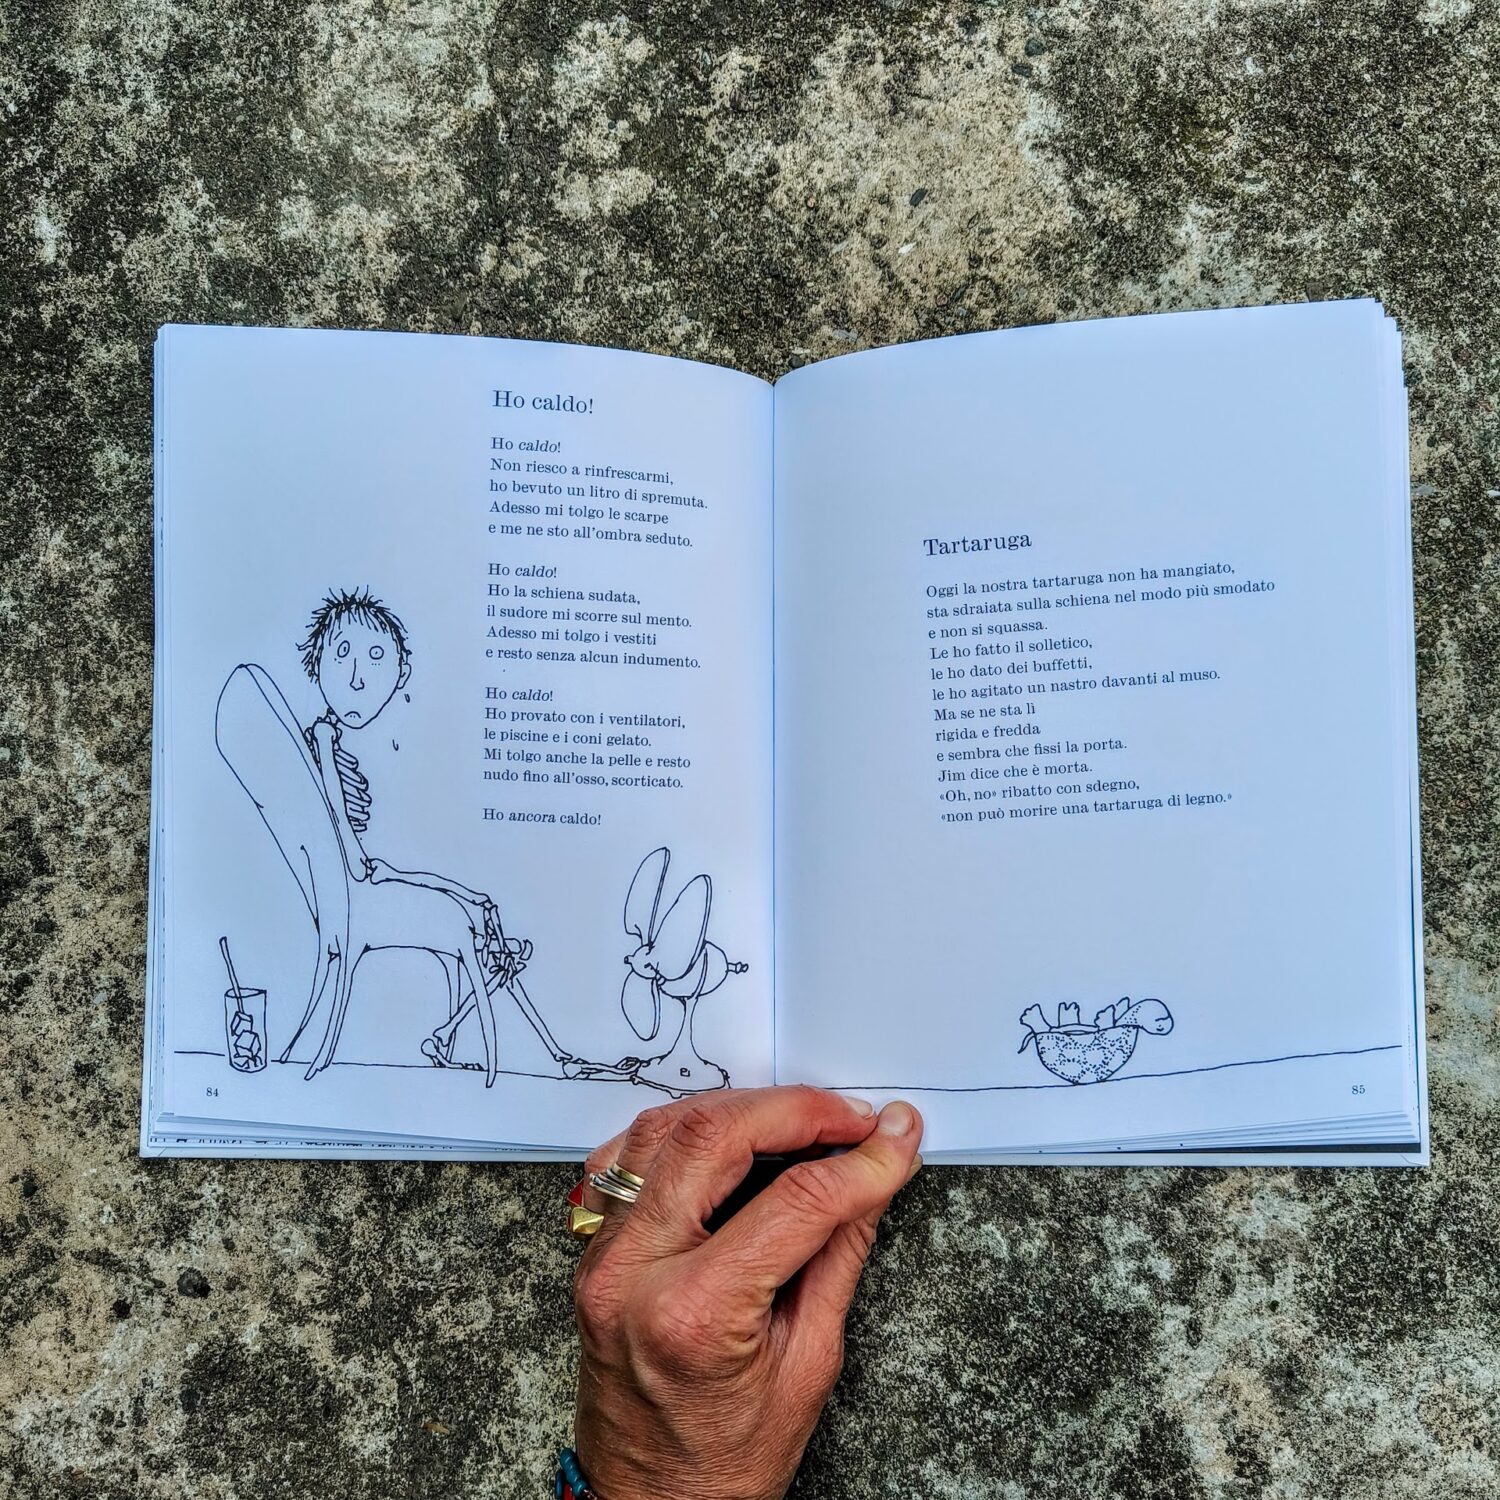 Ho caldo!
Ho caldo!
Non riesco a rinfrescarmi,
ho bevuto un litro di spremuta.
Adesso mi tolgo le scarpe
e me ne sto all'ombra seduto.
Ho caldo!
Ho la schiena sudata,
il sudore mi scorre sul mento.
Adesso mi tolgo i vestiti
e resto senza alcun indumento.
Ho caldo!
Ho provato con i ventilatori,
le piscine e i coni gelato.
Mi tolgo anche la pelle e resto
nudo fino all'osso, scorticato.
Ho ancora caldo!
84
Tartaruga
Oggi la nostra tartaruga non ha mangiato,
sta sdraiata sulla schiena nel modo più smodato
e non si squassa.
Le ho fatto il solletico,
le ho dato dei buffetti,
le ho agitato un nastro davanti al muso.
Ma se ne sta lì
rigida e fredda
e sembra che fissi la porta.
Jim dice che è morta.
«Oh, no» ribatto con sdegno,
«non può morire una tartaruga di legno.»
85